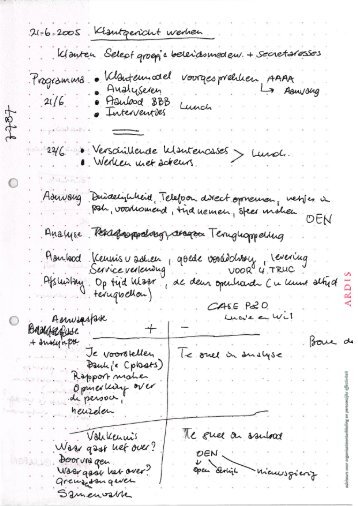 21-6-2005 Klantgericht werken
Klanten Select groepje beleidsmedew. + secretaresses
Programma • Klantenmodel voorgesprekken AAAA
21/6 • Analyseren → Aanvang
• Aanbod BBB Lunch
• Interventies
22/6 • Verschillende klantencases > Lunch.
• Werken met acteurs.
Aanvang Duidelijkheid, Telefoon direct opnemen, netjes in
pak, voorkomend, tijd nemen, sfeer maken
OEN
Analyse Terugkoppeling
Aanbod Kennis v zaken, goede voorlichting, levering
Serviceverlening VOOR U TRUC
Afsluiting Op tijd klaar, de deur openhouden (u kunt altijd
terugbellen)
CASE P&O
Lucie en Wil
Aanvangsfase
+ analyse + -
Je voorstellen Te snel in analyse
Dank je (plaats)
Rapport maken
Opmerking over
de persoon,
Vakkennis Te snel in aanbod
Waar gaat het over? OEN
Doorvragen open eerlijk nieuwsgierig
Waar gaat het over?
Grenzen geven
Samenvatten
ARDIS